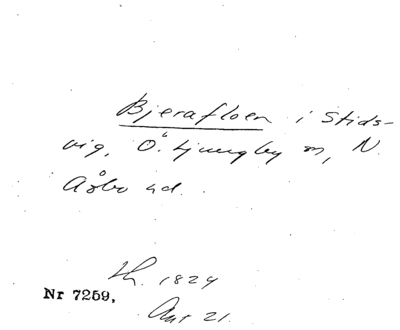 Bjerafloen i Stids-
vig, Ö. Ljungby sn, N.
Åsbo hd.
Lh. 1824
Nr 7259,
21.